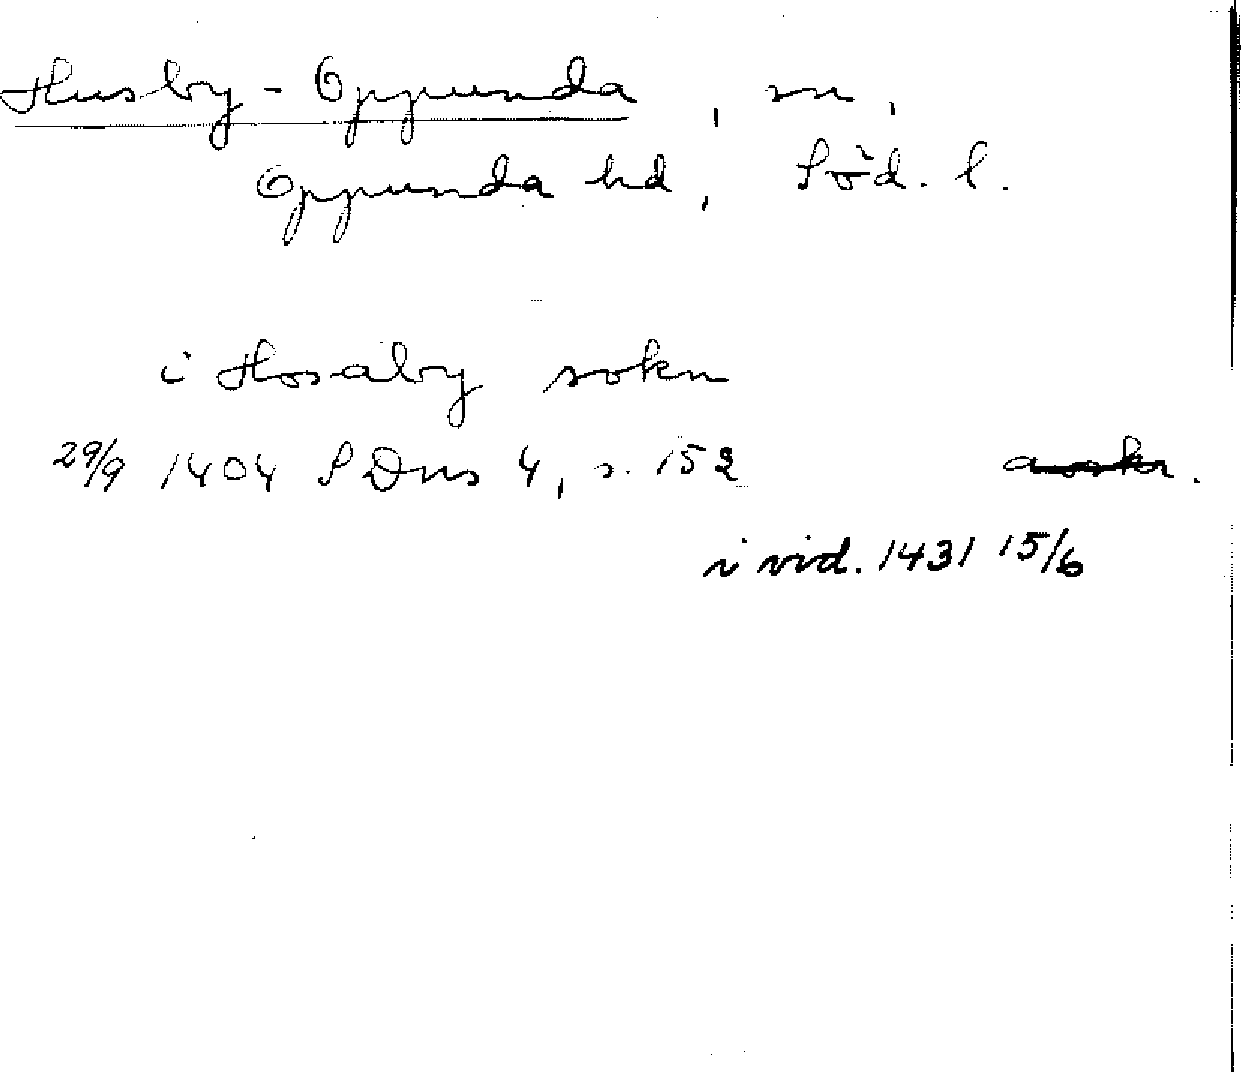 Husby-Oppunda, sn,
Oppunda hd, Söd. l.
i Hosaby sokn
29/9 1404 SDns 4, s. 152 avskr.
i vid. 1431 15/6